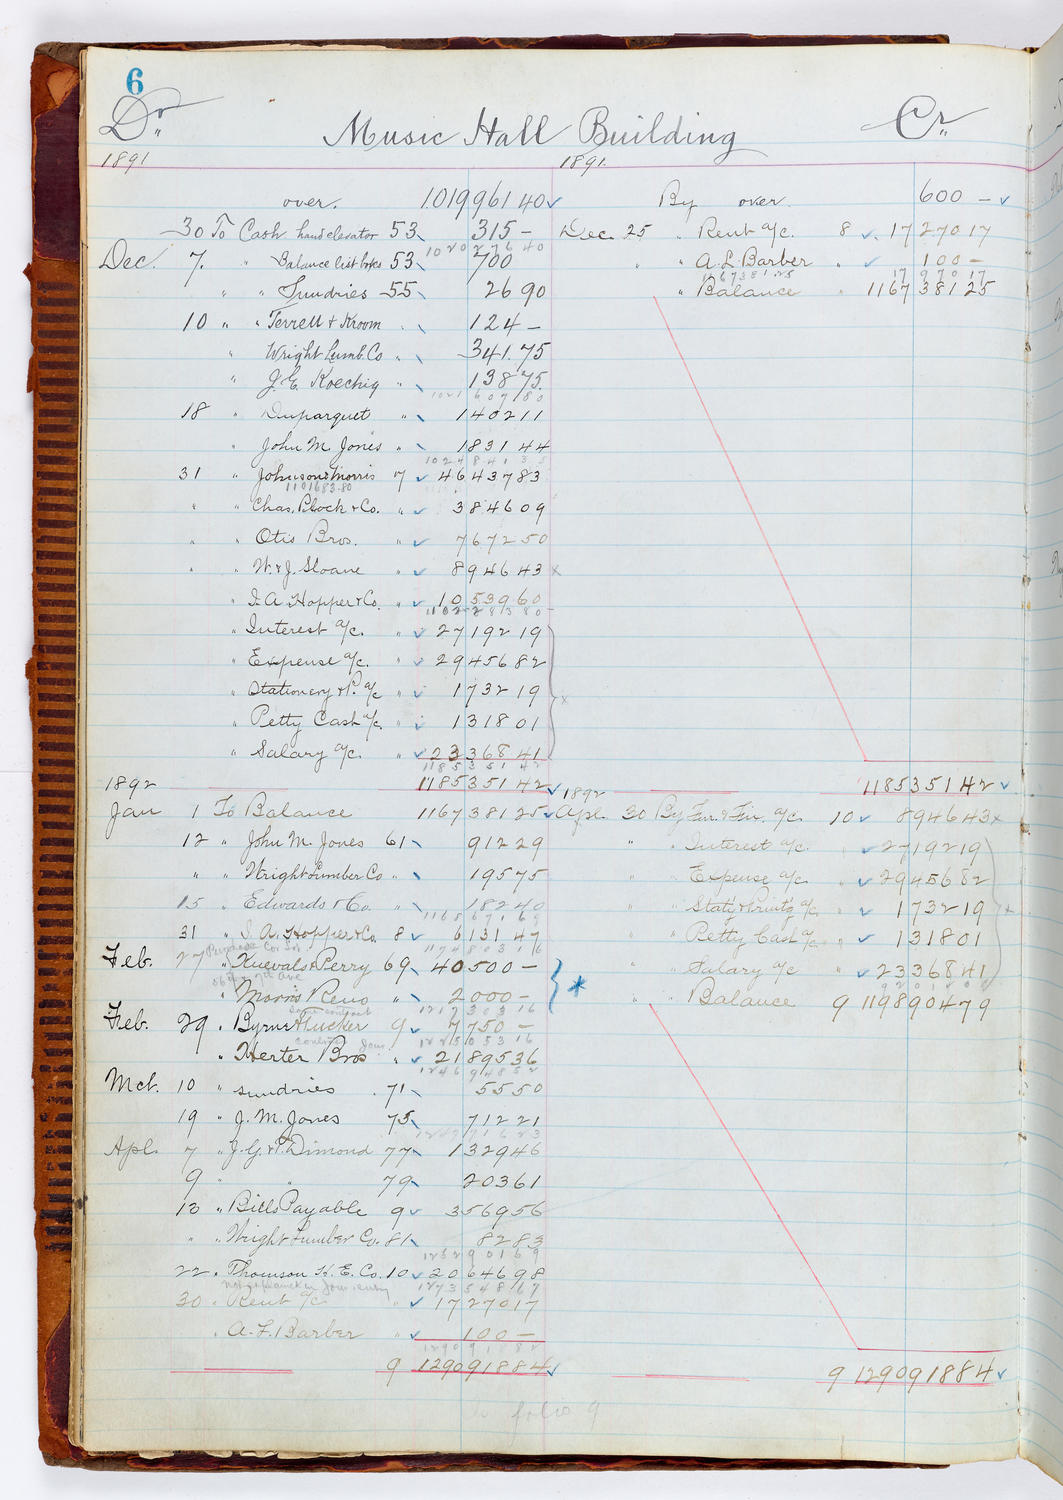 6
Dr. Music Hall Building Cr.
1891 1891.
over. 1019961 40 By over. 600 —
30 To Cash hand elevator 53 315 — Dec. 25 " Rent a/c. 8 17270 17
1020276 40
Dec. 7. " Balance list bobs 53 700 " " A. L. Barber " 100 —
1167381.25 17970 17
" " Sundries 55 26 90 " Balance " 1167381 25
10 " " Terrell & Kroom " 124 —
" Wright Lumb. Co " 341.75
" J. E. Koechig " 138 75.
1021607 80
18 " Duparquet " 1402 11
" John M. Jones " 1831 44
1024841 35
31 " Johnson & Morris 7 46437 83
1101683.80
" " Chas. Plock & Co. " 3846 09
" " Otis Bros. " 7672 50
" " W. & J. Sloane " 89464 3 x
" I. A. Hopper & Co. " 10539 60
1102281 380
" Interest a/c. " 27192 19
" Expense a/c. " 29456 82
" Stationery & P. a/c " 1732 19 x
" Petty Cash a/c. " 1318 01
" Salary a/c. " 23368 41
1185351 42
1892 1185351 42 1892 1185351 42
Jan 1 To Balance 1167381 25 Apl. 30 By Fur. & Fix. a/c. 10 89464 3 x
12 " John M. Jones 61 912 29 " " Interest a/c. 27192 19
" " Wright Lumber Co " 195 75 " Expense a/c. " 29456 82
15 " Edwards & Co. " 182 40 " Staty & Printg a/c. " 1732 19 x
1168671 69
31 " I. A. Hopper & Co. 8 6131 47 " " Petty Cash a/c. " 1318 01
1174803 16
Feb. 27 " Kuevals & Perry 69 40500 — " " Salary a/c " 23368 41
56th & 7th Ave
" Morris Reno " 2000 — " " Balance 9 1198904 79
same contract 1217303 16
Feb. 29 " Byrne & Tucker 9 7750 —
1225053 16
" Herter Bros " 21895 36
1246948 52
Mch. 10 " sundries 71 55 50
19 " J. M. Jones 75 712 21
1247716 23
Apl. 7 " J. G. & T. Dimond 77 1329 46
9 " " 79 203 61
13 " Bills Payable 9 3569 56
" " Wright Lumber Co. 81 82 83
1252901 69
22 " Thomson H. E. Co. 10 20646 98
1273548 67
30 " Rent a/c " 17270 17
" A. L. Barber " 100 —
1290918 84
9 1290918 84 9 1290918 84
folio 9